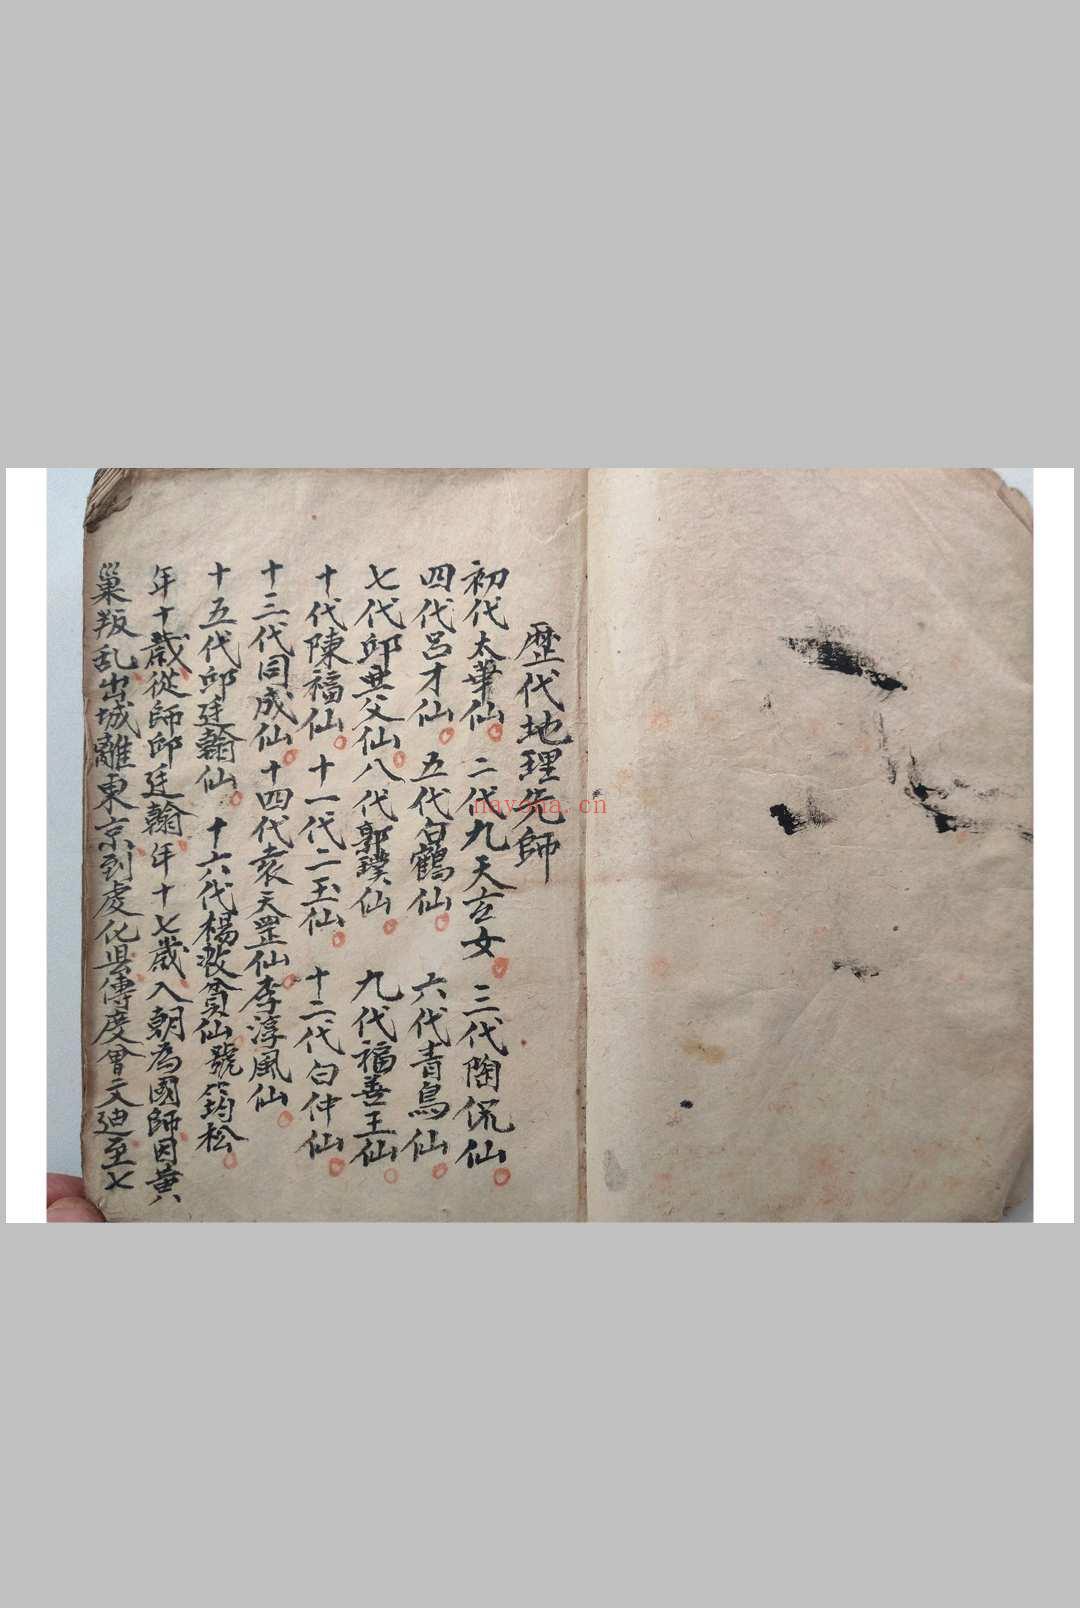 歷代地理先師
初代太華仙 二代九天玄女 三代陶侃仙
四代呂才仙 五代白鶴仙 六代青鳥仙
七代邱與父仙八代郭璞仙 九代福善王仙
十代陳福仙 十一代二玉仙 十二代白仲仙
十三代同成仙十四代袁天罡仙李淳風仙
十五代邱廷翰仙 十六代楊救貧仙號筠松
年十歲從師邱廷翰年十七歲入朝為國師因黄
巢叛乱出城離東京到虔化縣傳度曾文辿至七
nayona.cn